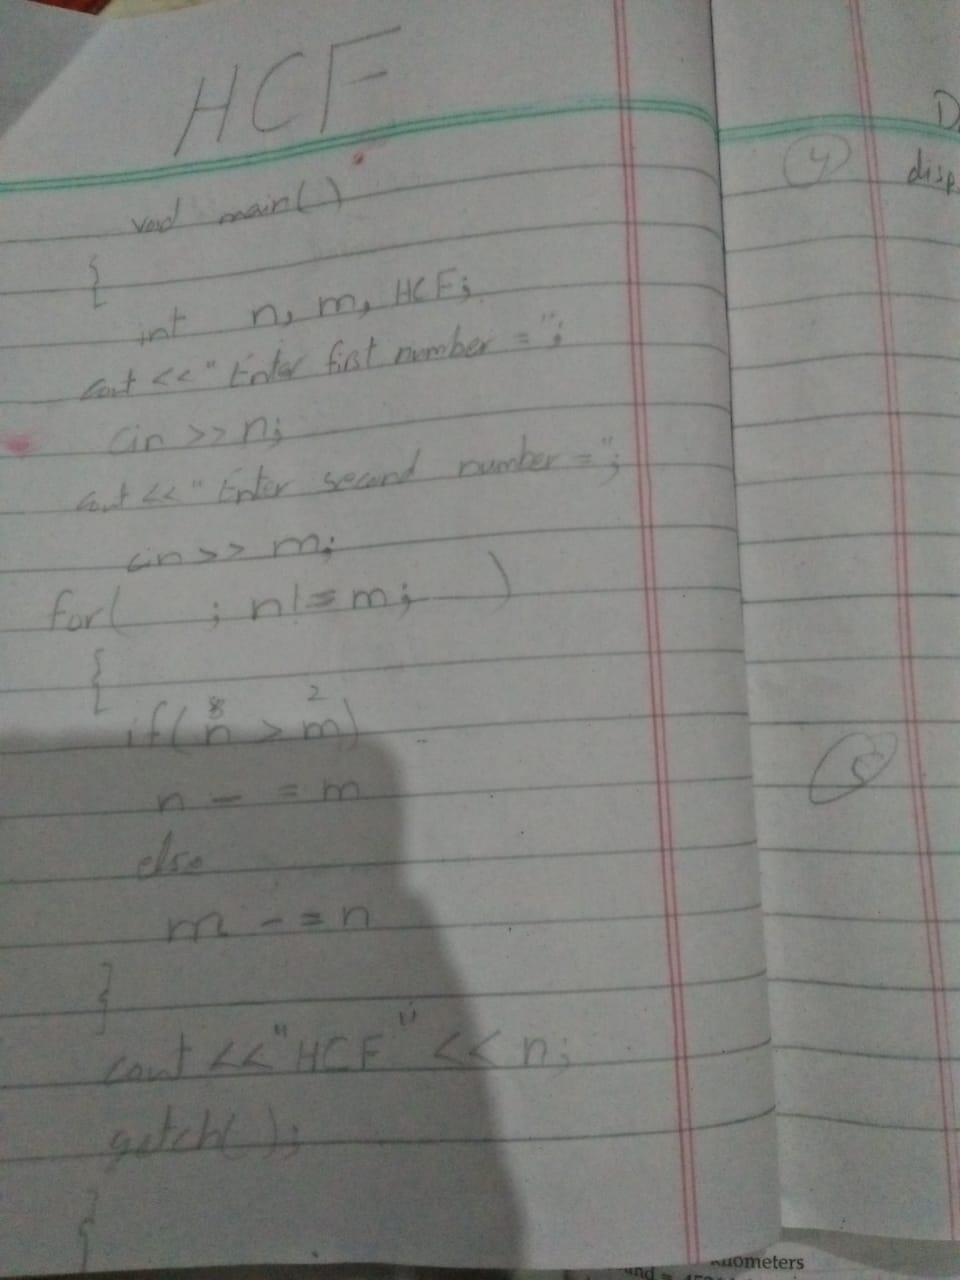 HCF
void main()
{
int n, m, HCF;
cout << "Enter first number =";
cin >> n;
cout << "Enter second number =";
cin >> m;
for( ; n!=m; )
{
8 2
if(n > m)
n - = m
else
m - = n
}
cout << "HCF" << n;
getch();
}
4
disp
5